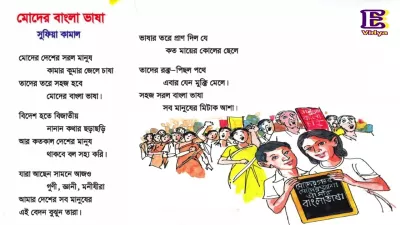 মোদের বাংলা ভাষা
সুফিয়া কামাল
মোদের দেশের সরল মানুষ
কামার কুমার জেলে চাষা
তাদের তরে সহজ হবে
মোদের বাংলা ভাষা।
বিদেশ হতে বিজাতীয়
নানান কথার ছড়াছড়ি
আর কতকাল দেশের মানুষ
থাকবে বল সহ্য করি।
যারা আছেন সামনে আজও
গুণী, জ্ঞানী, মনীষীরা
আমার দেশের সব মানুষের
এই বেদন বুঝুন তারা।
ভাষার তরে প্রাণ দিল যে
কত মায়ের কোলের ছেলে
তাদের রক্ত-পিছল পথে
এবার যেন মুক্তি মেলে।
সহজ সরল বাংলা ভাষা
সব মানুষের মিটাক আশা।
E
Vidya
বাংলাভাষা